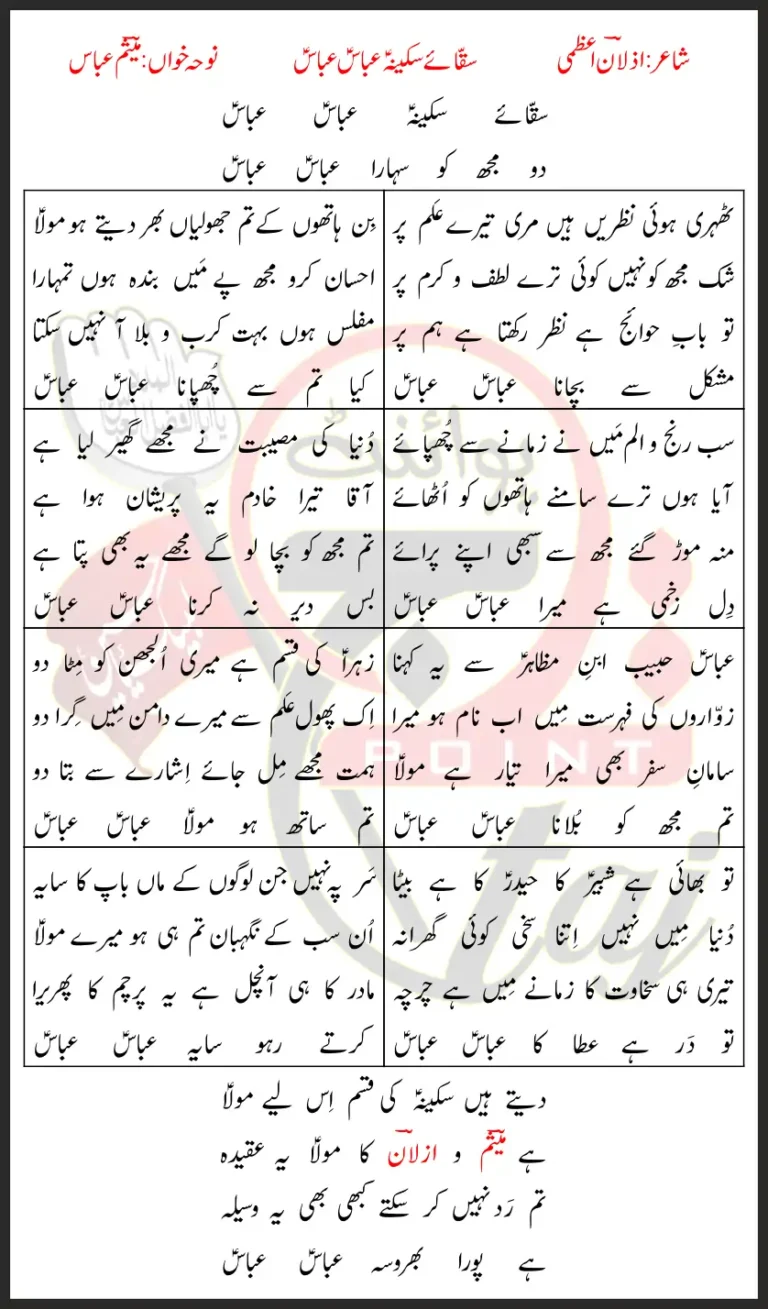 شاعر: اذلانؔ اعظمی سقّائے سکینہؑ عباسؑ عباسؑ نوحہ خواں: میثمؔ عباس
سقّائے سکینہؑ عباسؑ عباسؑ
دو مجھ کو سہارا عباسؑ عباسؑ
ٹھہری ہوئی نظریں ہیں مری تیرے علَم پر
شک مجھ کو نہیں کوئی ترے لطف و کرم پر
تو بابِ حوائج ہے نظر رکھتا ہے ہم پر
مشکل سے بچانا عباسؑ عباسؑ
بِن ہاتھوں کے تم جھولیاں بھر دیتے ہو مولاؑ
احسان کرو مجھ پے مَیں بندہ ہوں تمہارا
مفلس ہوں بہت کرب و بلا آ نہیں سکتا
کیا تم سے چُھپانا عباسؑ عباسؑ
سب رنج و الم مَیں نے زمانے سے چُھپائے
آیا ہوں ترے سامنے ہاتھوں کو اُٹھائے
منہ موڑ گئے مجھ سے سبھی اپنے پرائے
دِل زخمی ہے میرا عباسؑ عباسؑ
دُنیا کی مصیبت نے مجھے گھیر لیا ہے
آقا تیرا خادم یہ پریشان ہوا ہے
تم مجھ کو بچا لو گے مجھے یہ بھی پتا ہے
بس دیر نہ کرنا عباسؑ عباسؑ
عباسؑ حبیب ابنِ مظاہرؑ سے یہ کہنا
زوّاروں کی فہرست مِیں اب نام ہو میرا
سامانِ سفر بھی میرا تیار ہے مولاؑ
تم مجھ کو بُلانا عباسؑ عباسؑ
زہراؑ کی قسم ہے میری اُلجھن کو مِٹا دو
اِک پھول علَم سے میرے دامن مِیں گِرا دو
ہمت مجھے مِل جائے اِشارے سے بتا دو
تم ساتھ ہو مولاؑ عباسؑ عباسؑ
تو بھائی ہے شبیرؑ کا حیدرؑ کا ہے بیٹا
دُنیا مِیں نہیں اِتنا سخی کوئی گھرانہ
تیری ہی سخاوت کا زمانے مِیں ہے چرچہ
تو دَر ہے عطا کا عباسؑ عباسؑ
سَر پہ نہیں جن لوگوں کے ماں باپ کا سایہ
اُن سب کے نگہبان تم ہی ہو میرے مولاؑ
مادر کا ہی آنچل ہے یہ پرچم کا پھریرا
کرتے رہو سایہ عباسؑ عباسؑ
دیتے ہیں سکینہؑ کی قسم اِس لیے مولاؑ
ہے میثمؔ و ازلانؔ کا مولاؑ یہ عقیدہ
تم رَد نہیں کر سکتے کبھی بھی یہ وسیلہ
ہے پورا بھروسہ عباسؑ عباسؑ
پوائنٹ
POINT
taj